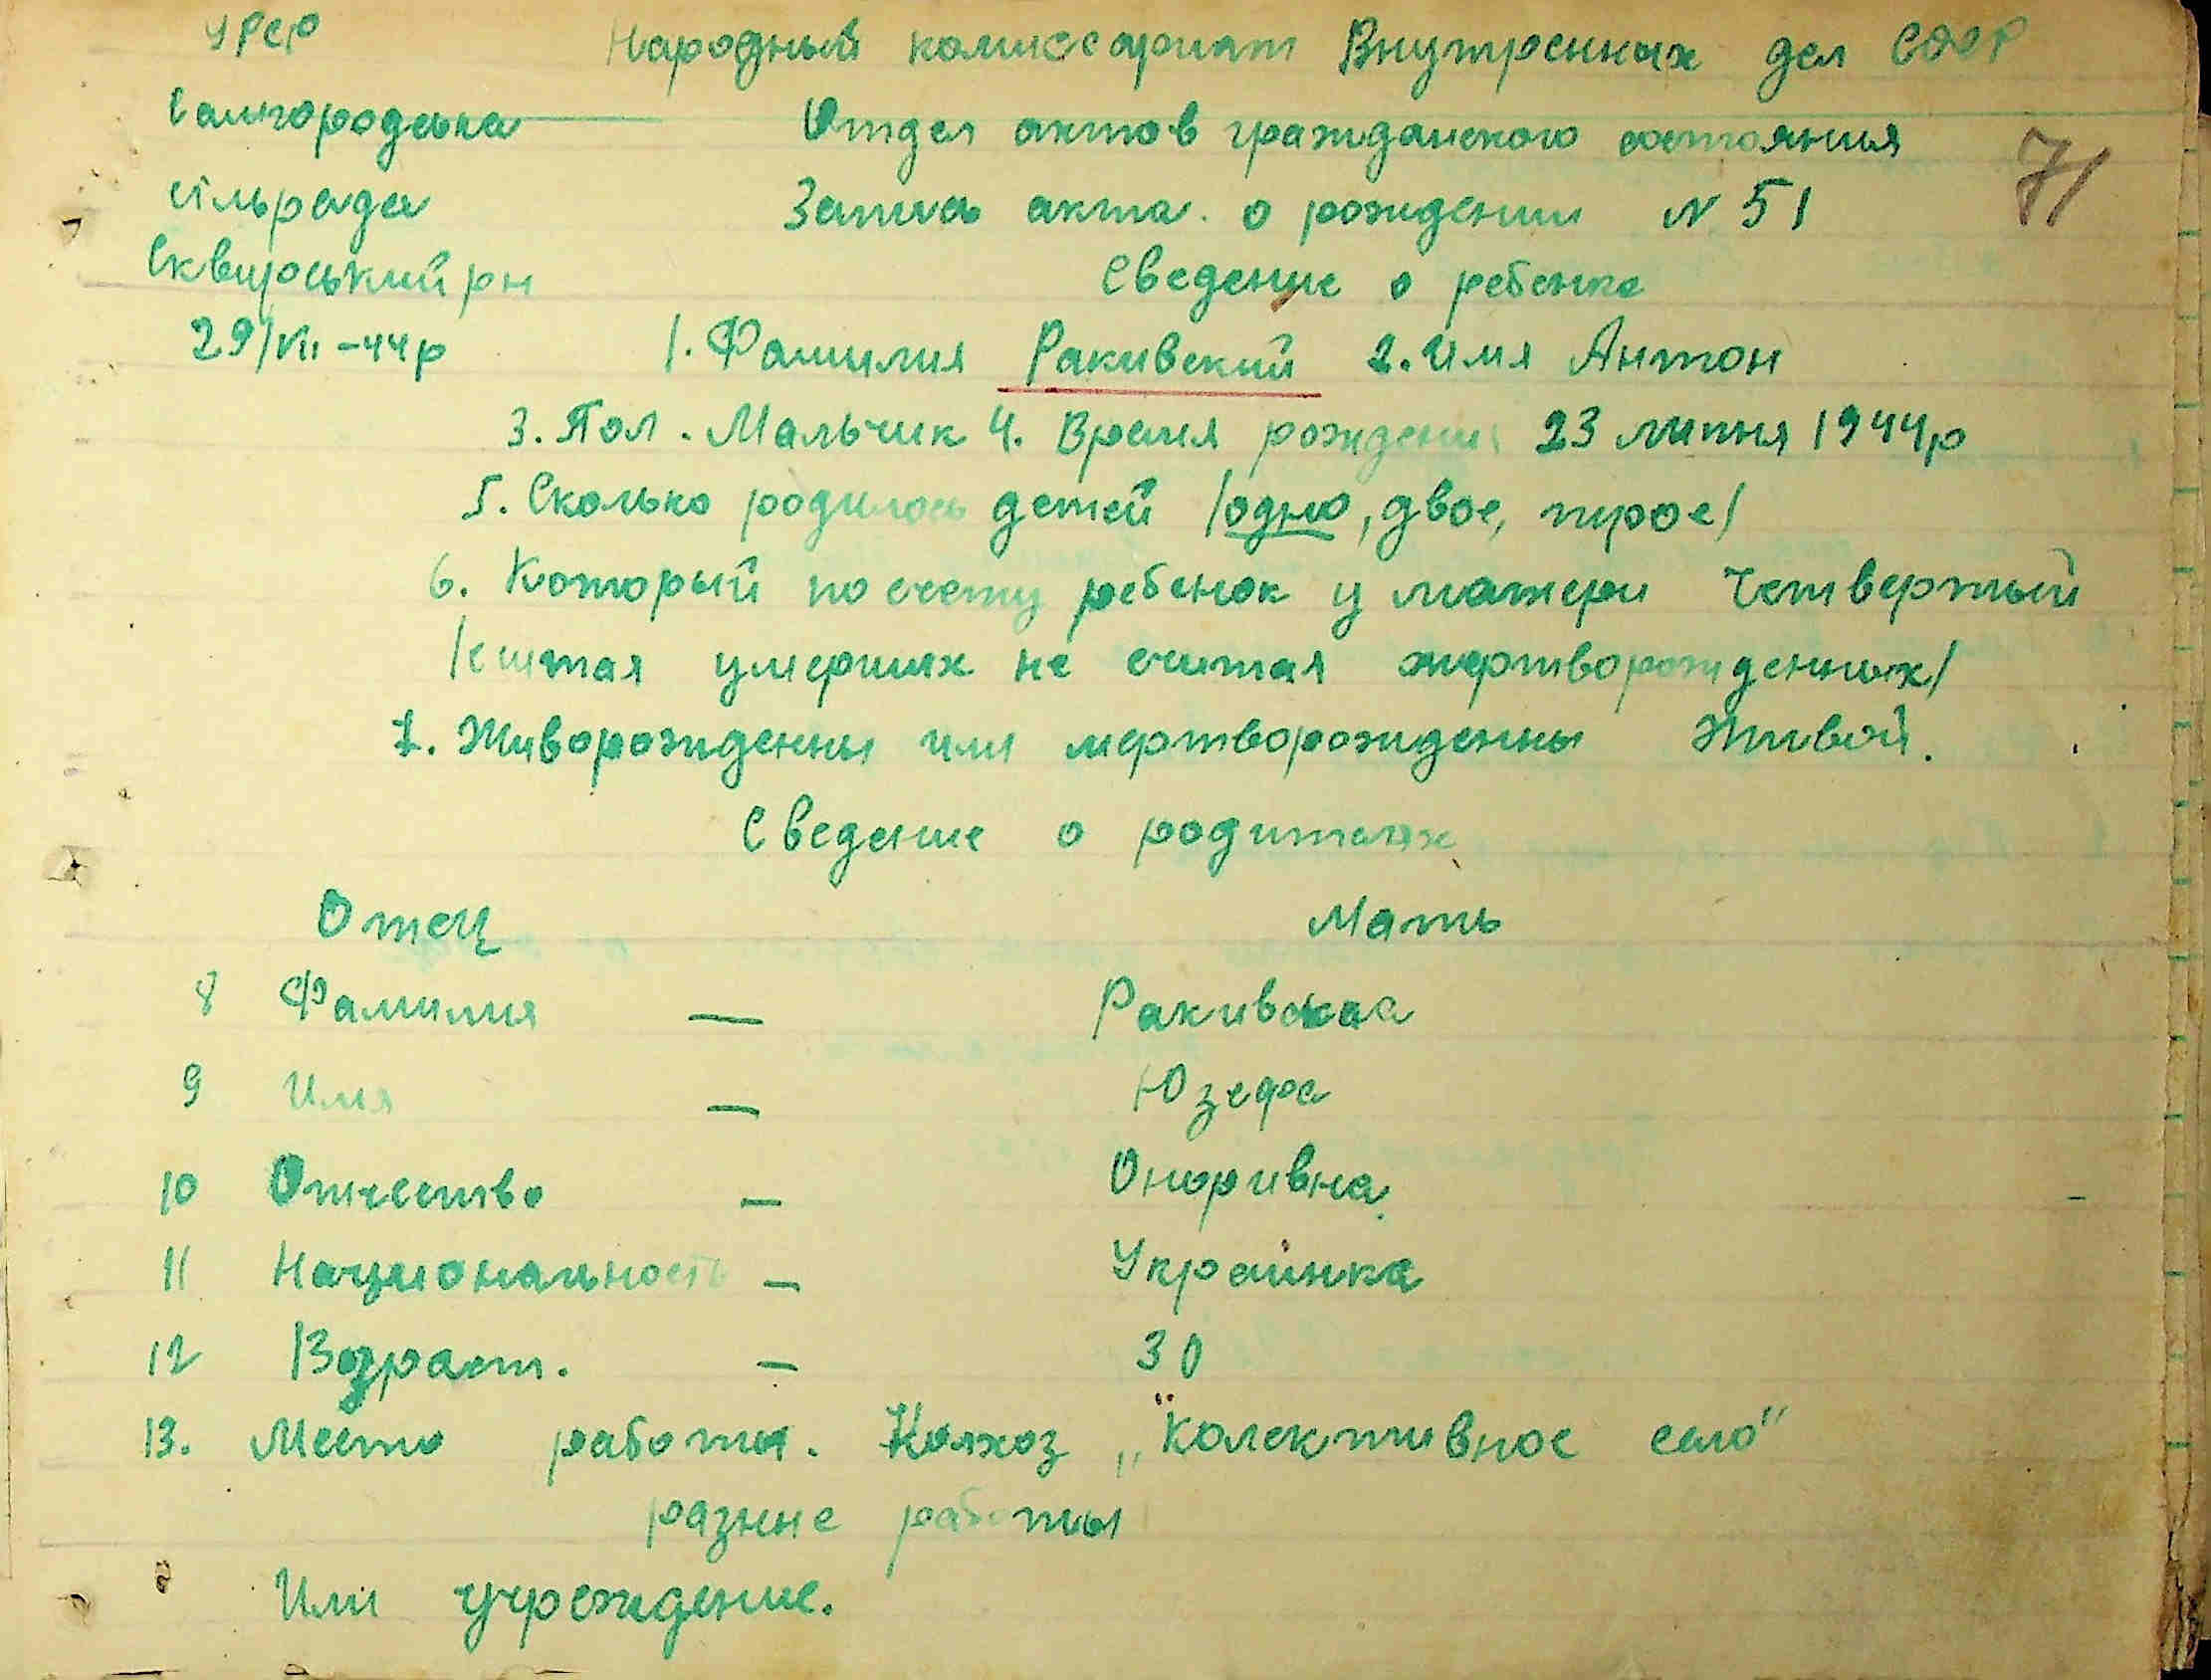 УРСР Народный комиссариат Внутренных дел СССР
Самгородська Отдел актов гражданского состояния
сільрада Запись акта о рождении N 51 71
Сквирський рн Сведение о ребенке
29/VII-44р 1. Фамилия Ракивский 2. Имя Антон
3. Пол. Мальчик 4. Время рождения 23 липня 1944р
5. Сколько родилось детей /одно, двое, трое/
6. Который по счету ребенок у матери Четвертый
/считая умерших не считая мертворожденных/
7. Живорожденны или мертворожденны Живой.
Сведение о родителях
Отец Мать
8 Фамилия — Ракивская
9 Имя — Юзефа
10 Отчество — Оноривна
11 Национальность — Украинка
12 Возраст. — 30
13. Место работы. Колхоз „Колективное село"
разние работы
Или учреждение.